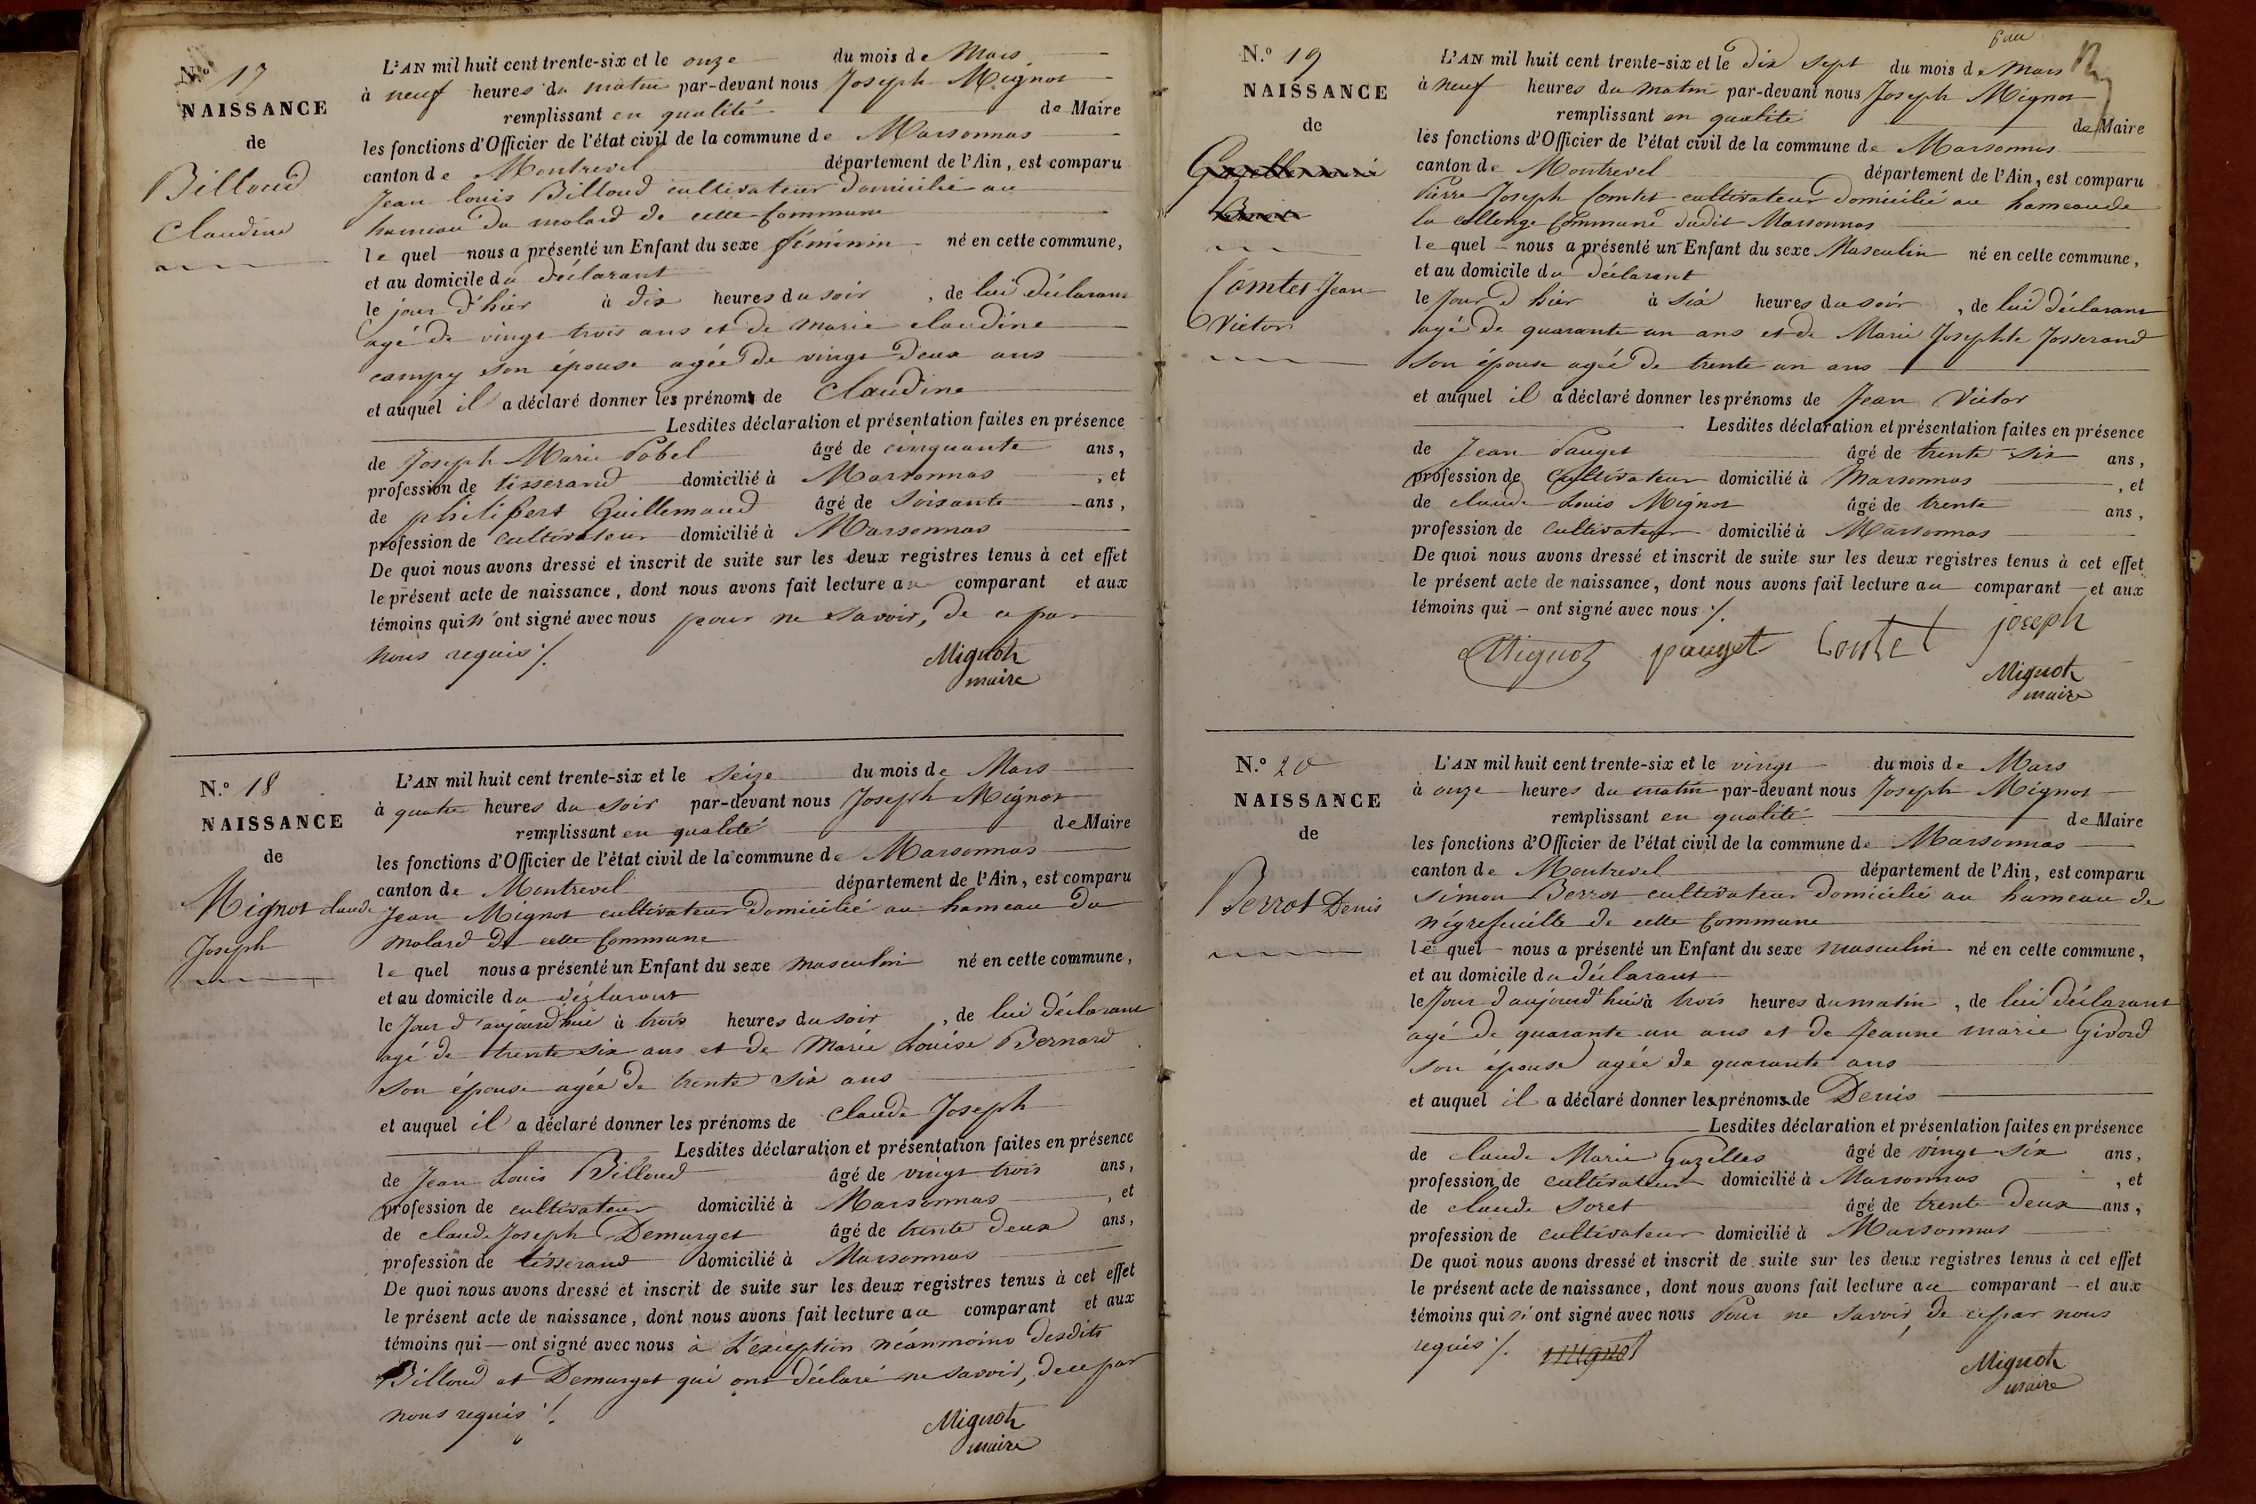 N.o 17
NAISSANCE
de
Billoud
Claudine
L'AN mil huit cent trente-six et le onze du mois de Mars
à neuf heures du matin par-devant nous Joseph Mignot
remplissant en qualité de Maire
les fonctions d'Officier de l'état civil de la commune de Marsonnas
canton de Montrevel département de l'Ain, est comparu
Jean louis Billoud cultivateur domicilié au
hameau du molard de cette Commune
le quel nous a présenté un Enfant du sexe féminin né en cette commune,
et au domicile du déclarant
le jour d'hier à dix heures du soir, de lui déclarant
agé de vingt trois ans et de marie claudine
campy son épouse agée de vingt deux ans
et auquel il a déclaré donner les prénoms de Claudine
Lesdites déclaration et présentation faites en présence
de Joseph Marie Pobel âgé de cinquante ans,
profession de tisserand domicilié à Marsonnas, et
de philibert Guillemaud âgé de soisante ans,
profession de cultivateur domicilié à Marsonnas
De quoi nous avons dressé et inscrit de suite sur les deux registres tenus à cet effet
le présent acte de naissance, dont nous avons fait lecture au comparant et aux
témoins qui n'ont signé avec nous pour ne savoir, de ce par
nous requis ./.
Mignot
maire
N.o 18
NAISSANCE
de
Mignot claude
Joseph
L'AN mil huit cent trente-six et le seize du mois de Mars
à quatre heures du soir par-devant nous Joseph Mignot
remplissant en qualité de Maire
les fonctions d'Officier de l'état civil de la commune de Marsonnas
canton de Montrevel département de l'Ain, est comparu
Jean Mignot cultivateur domicilié au hameau du
molard de cette Commune
le quel nous a présenté un Enfant du sexe masculin né en cette commune,
et au domicile du déclarant
le Jour d'aujourd'hui à trois heures du soir, de lui déclarant
agé de trente six ans et de Marie Louise Bernard
son épouse agée de trente six ans
et auquel il a déclaré donner les prénoms de Claude Joseph
Lesdites déclaration et présentation faites en présence
de Jean Louis Billoud âgé de vingt trois ans,
profession de cultivateur domicilié à Marsonnas, et
de claude Joseph Demurget âgé de trente deux ans,
profession de tisserand domicilié à Marsonnas
De quoi nous avons dressé et inscrit de suite sur les deux registres tenus à cet effet
le présent acte de naissance, dont nous avons fait lecture au comparant et aux
témoins qui ont signé avec nous à L'exception néanmoins desdits
Billoud et Demurget qui ont déclaré ne savoir, de ce par
nous requis ./.
Mignot
maire
N.o 19
NAISSANCE
de
Comtet Jean
Victor
L'AN mil huit cent trente-six et le dix sept du mois de Mars
à neuf heures du matin par-devant nous Joseph Mignot
remplissant en qualité de Maire
les fonctions d'Officier de l'état civil de la commune de Marsonnas
canton de Montrevel département de l'Ain, est comparu
Pierre Joseph Comtet cultivateur domicilié au hameau de
la collonge Commune dudit Marsonnas
le quel nous a présenté un Enfant du sexe Masculin né en cette commune,
et au domicile du déclarant
le Jour d hier à six heures du soir, de lui déclarant
agé de quarante un ans et de Marie Josephte Josserand
son épouse agée de trente un ans
et auquel il a déclaré donner les prénoms de Jean Victor
Lesdites déclaration et présentation faites en présence
de Jean Pauget âgé de trente six ans,
profession de Cultivateur domicilié à Marsonnas, et
de claude Louis Mignot âgé de trente ans,
profession de cultivateur domicilié à Marsonnas
De quoi nous avons dressé et inscrit de suite sur les deux registres tenus à cet effet
le présent acte de naissance, dont nous avons fait lecture au comparant et aux
témoins qui ont signé avec nous ./.
Mignot pauget Comtet joseph
Mignot
maire
N.o 20
NAISSANCE
de
Perrot Denis
L'AN mil huit cent trente-six et le vingt du mois de Mars
à onze heures du matin par-devant nous Joseph Mignot
remplissant en qualité de Maire
les fonctions d'Officier de l'état civil de la commune de Marsonnas
canton de Montrevel département de l'Ain, est comparu
simon Perrot cultivateur domicilié au hameau de
négrefeuille de cette Commune
le quel nous a présenté un Enfant du sexe masculin né en cette commune,
et au domicile du déclarant
le Jour d'aujourd'hui à trois heures du matin, de lui déclarant
agé de quarante un ans et de Jeanne marie Givord
son épouse agée de quarante ans
et auquel il a déclaré donner les prénoms de Denis
Lesdites déclaration et présentation faites en présence
de claude Marie Gazelles âgé de vingt six ans,
profession de cultivateur domicilié à Marsonnas, et
de claude Soret âgé de trente deux ans,
profession de cultivateur domicilié à Marsonnas
De quoi nous avons dressé et inscrit de suite sur les deux registres tenus à cet effet
le présent acte de naissance, dont nous avons fait lecture au comparant et aux
témoins qui n'ont signé avec nous Pour ne savoir, de ce par nous
requis ./. Mignot
Mignot
maire